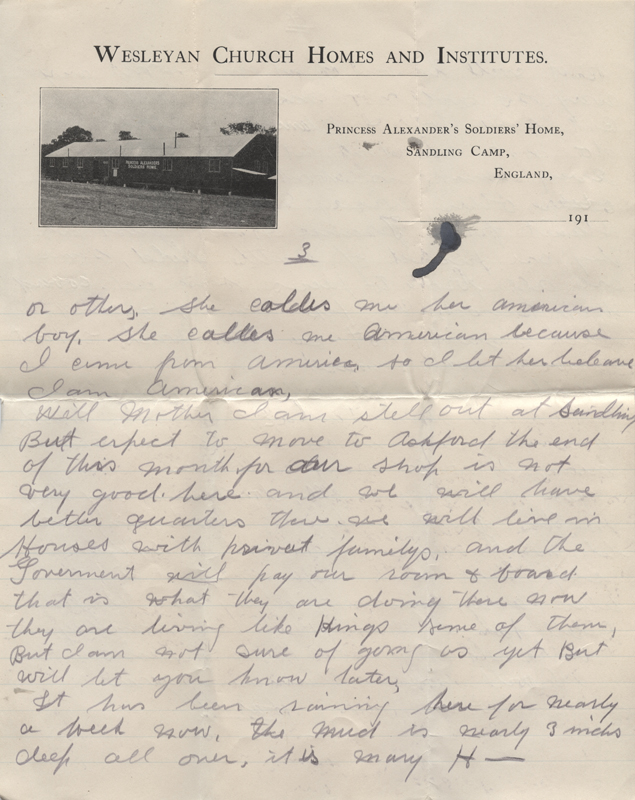 WESLEYAN CHURCH HOMES AND INSTITUTES.
PRINCESS ALEXANDER'S SOLDIERS' HOME,
SANDLING CAMP,
ENGLAND,
191
3
or other, she caldes me her american
boy, she calles me American because
I came from America, so I let her beleave
I am American,
Well Mother I am still out at Sandling
But expect to move to Ashford the end
of this month, for our shop is not
very good here and we will have
better quarters there we will live in
Houses with privet familys, and the
Goverment will pay our room & board
that is what they are doing there now
they are living like Kings some of them,
But I am not sure of going as yet But
will let you know later,
It has been raining here for nearly
a week now, the mud is nearly 3 inchs
deep all over, it is mary H—